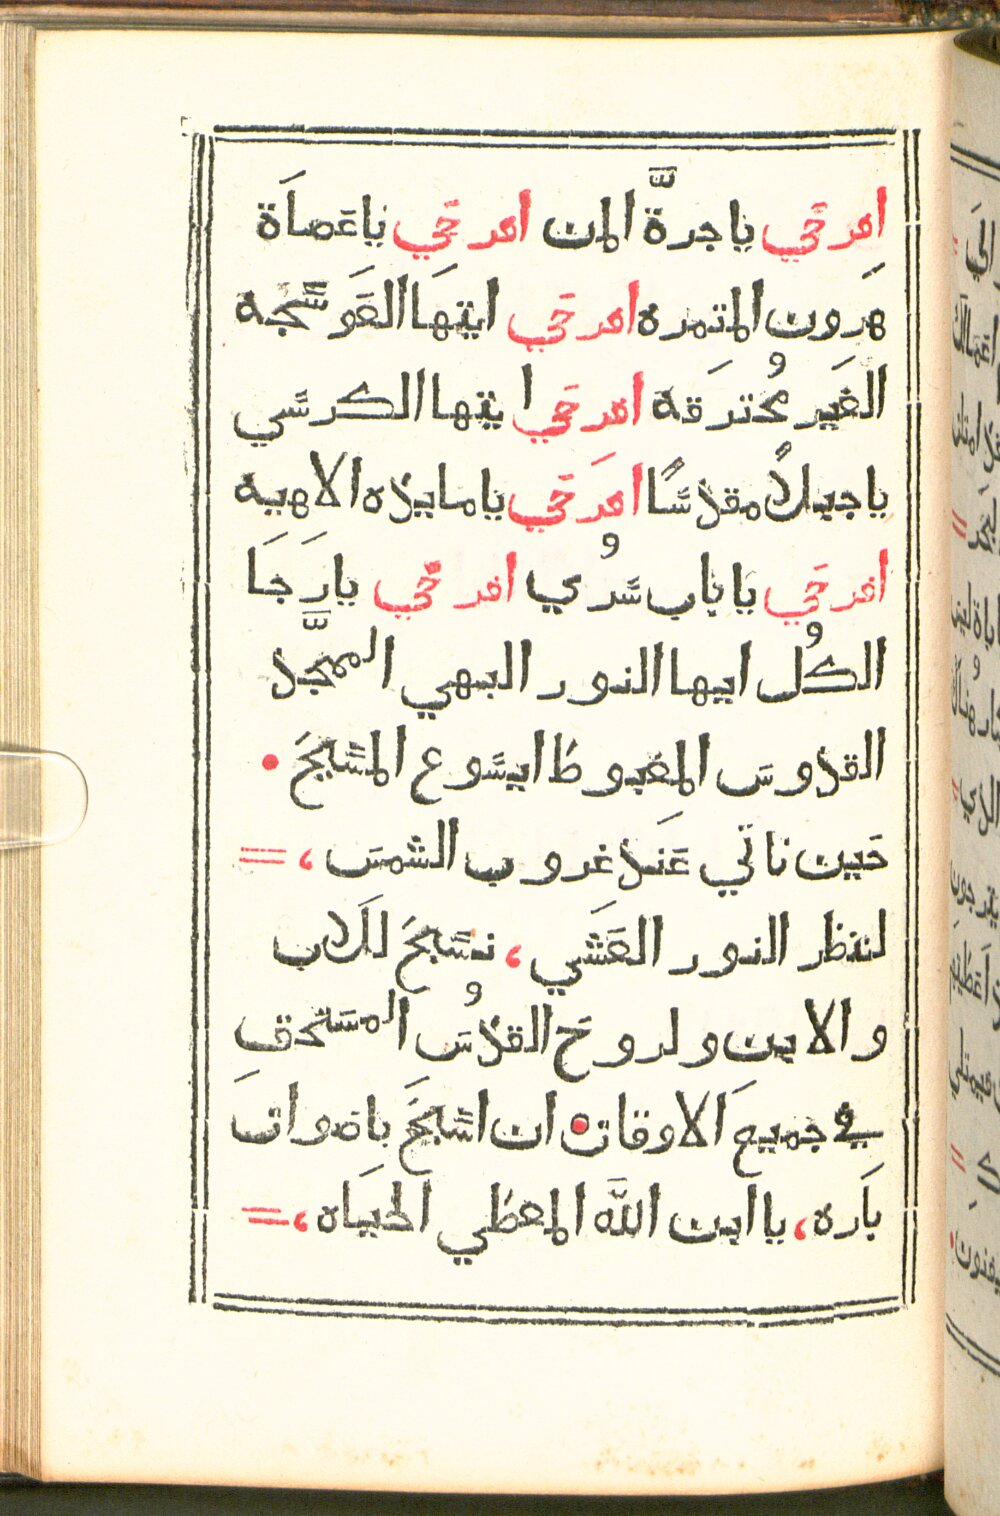 افرحي ياجرة المن افرحي ياعصاة
هرون المتمره افرحي ايتها العوسجه
الغير محترقه افرحي ايتها الكرسي
ياجبلاً مقدسًا افرحي يامايده الاهيه
افرحي ياباب سُري افرحي يارجا
الكُل ايها النور البهي الممجّد
القدوس المغبوط ايسوع المسيح •
حين ناتي عند غروب الشمس ، =
لننظر النور العشي ، نسبح للاب
والابن ولروح القدُس المستحق
في جميع الاوقات • ان اسبح باصوات
باره ، يا ابن اللّه المعطي الحياه ، =